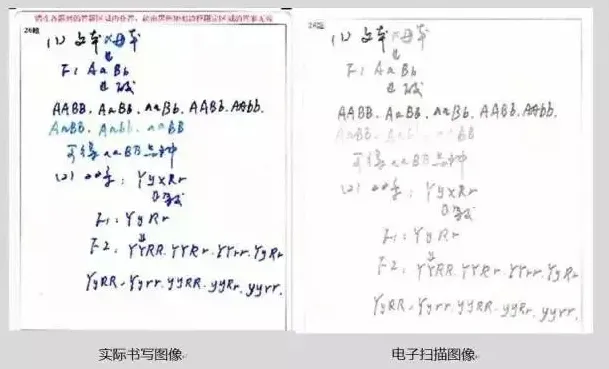 请在各题目的答题区域内作答，超出黑色矩形边框限定区域的答案无效
(1) 父本×母本
F1 AaBb
AABB. AaBb. aaBb. AABb. AAbb.
AaBB. Aabb. aaBB
可得aaBB品种
(2) YyxRr
F1: YyRr
F2: YYRR. YYRr. YYrr. YyRr
YyRR. Yyrr. yyRR. yyRr. yyrr.
实际书写图像
(1) 父本×母本
F1 AaBb
AABB. AaBb. aaBb. AABb. AAbb.
可得aaBB品种
(2) YyxRr
F1: YyRr
F2: YYRR. YYRr. YYrr. YyRr
YyRR. Yyrr. yyRR. yyRr. yyrr.
电子扫描图像